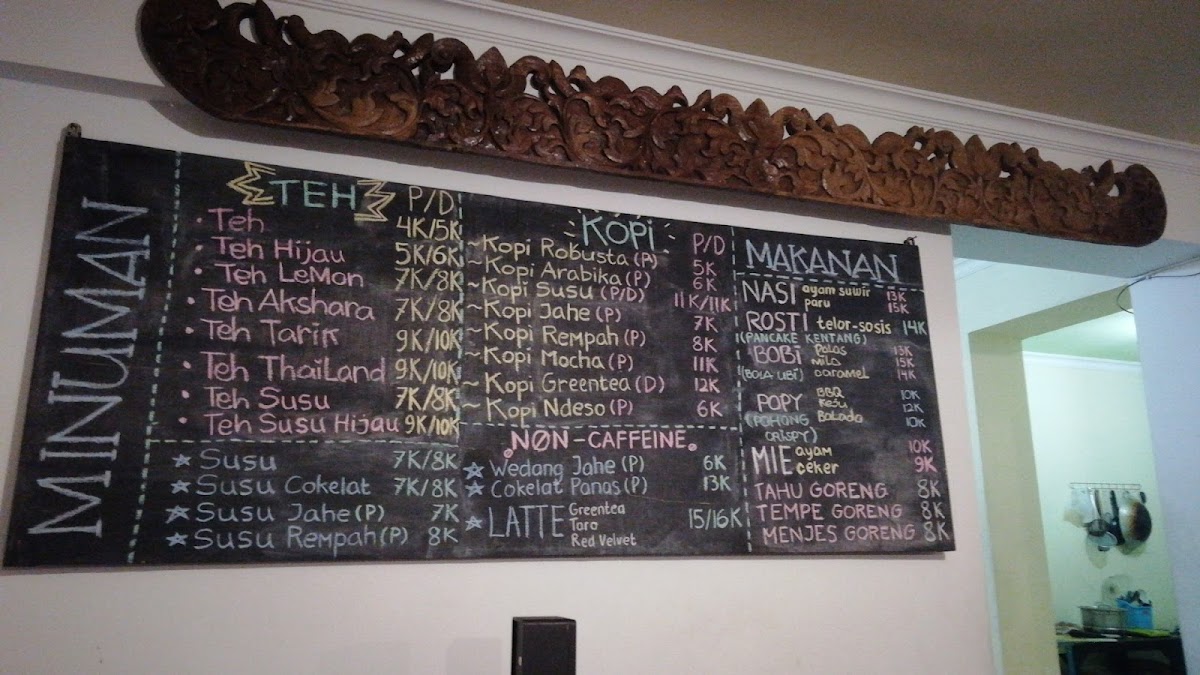 MINUMAN
TEH P/D
• Teh 4K/5K
• Teh Hijau 5K/6K
• Teh LeMon 7K/8K
• Teh Akshara 7K/8K
• Teh Tarik 9K/10K
• Teh ThaiLand 9K/10K
• Teh Susu 7K/8K
• Teh Susu Hijau 9K/10K
Susu 7K/8K
Susu Cokelat 7K/8K
Susu Jahe (P) 7K
Susu Rempah (P) 8K
KOPI P/D
~Kopi Robusta (P) 5K
~Kopi Arabika (P) 6K
~Kopi Susu (P/D) 11K/11K
~Kopi Jahe (P) 7K
~Kopi Rempah (P) 8K
~Kopi Mocha (P) 11K
~Kopi Greentea (D) 12K
~Kopi Ndeso (P) 6K
NON-CAFFEINE
Wedang Jahe (P) 6K
Cokelat Panas (P) 13K
LATTE Greentea 15/16K
Taro
Red Velvet
MAKANAN
NASI ayam suwir 13K
paru 15K
ROSTI telor-sosis 14K
(PANCAKE KENTANG)
BOBI Polos 13K
(BOLA UBI) Milo 15K
caramel 14K
POPY BBQ 10K
(POHONG Keju 12K
CRISPY) Balado 10K
MIE ayam 10K
ceker 9K
TAHU GORENG 8K
TEMPE GORENG 8K
MENJES GORENG 8K